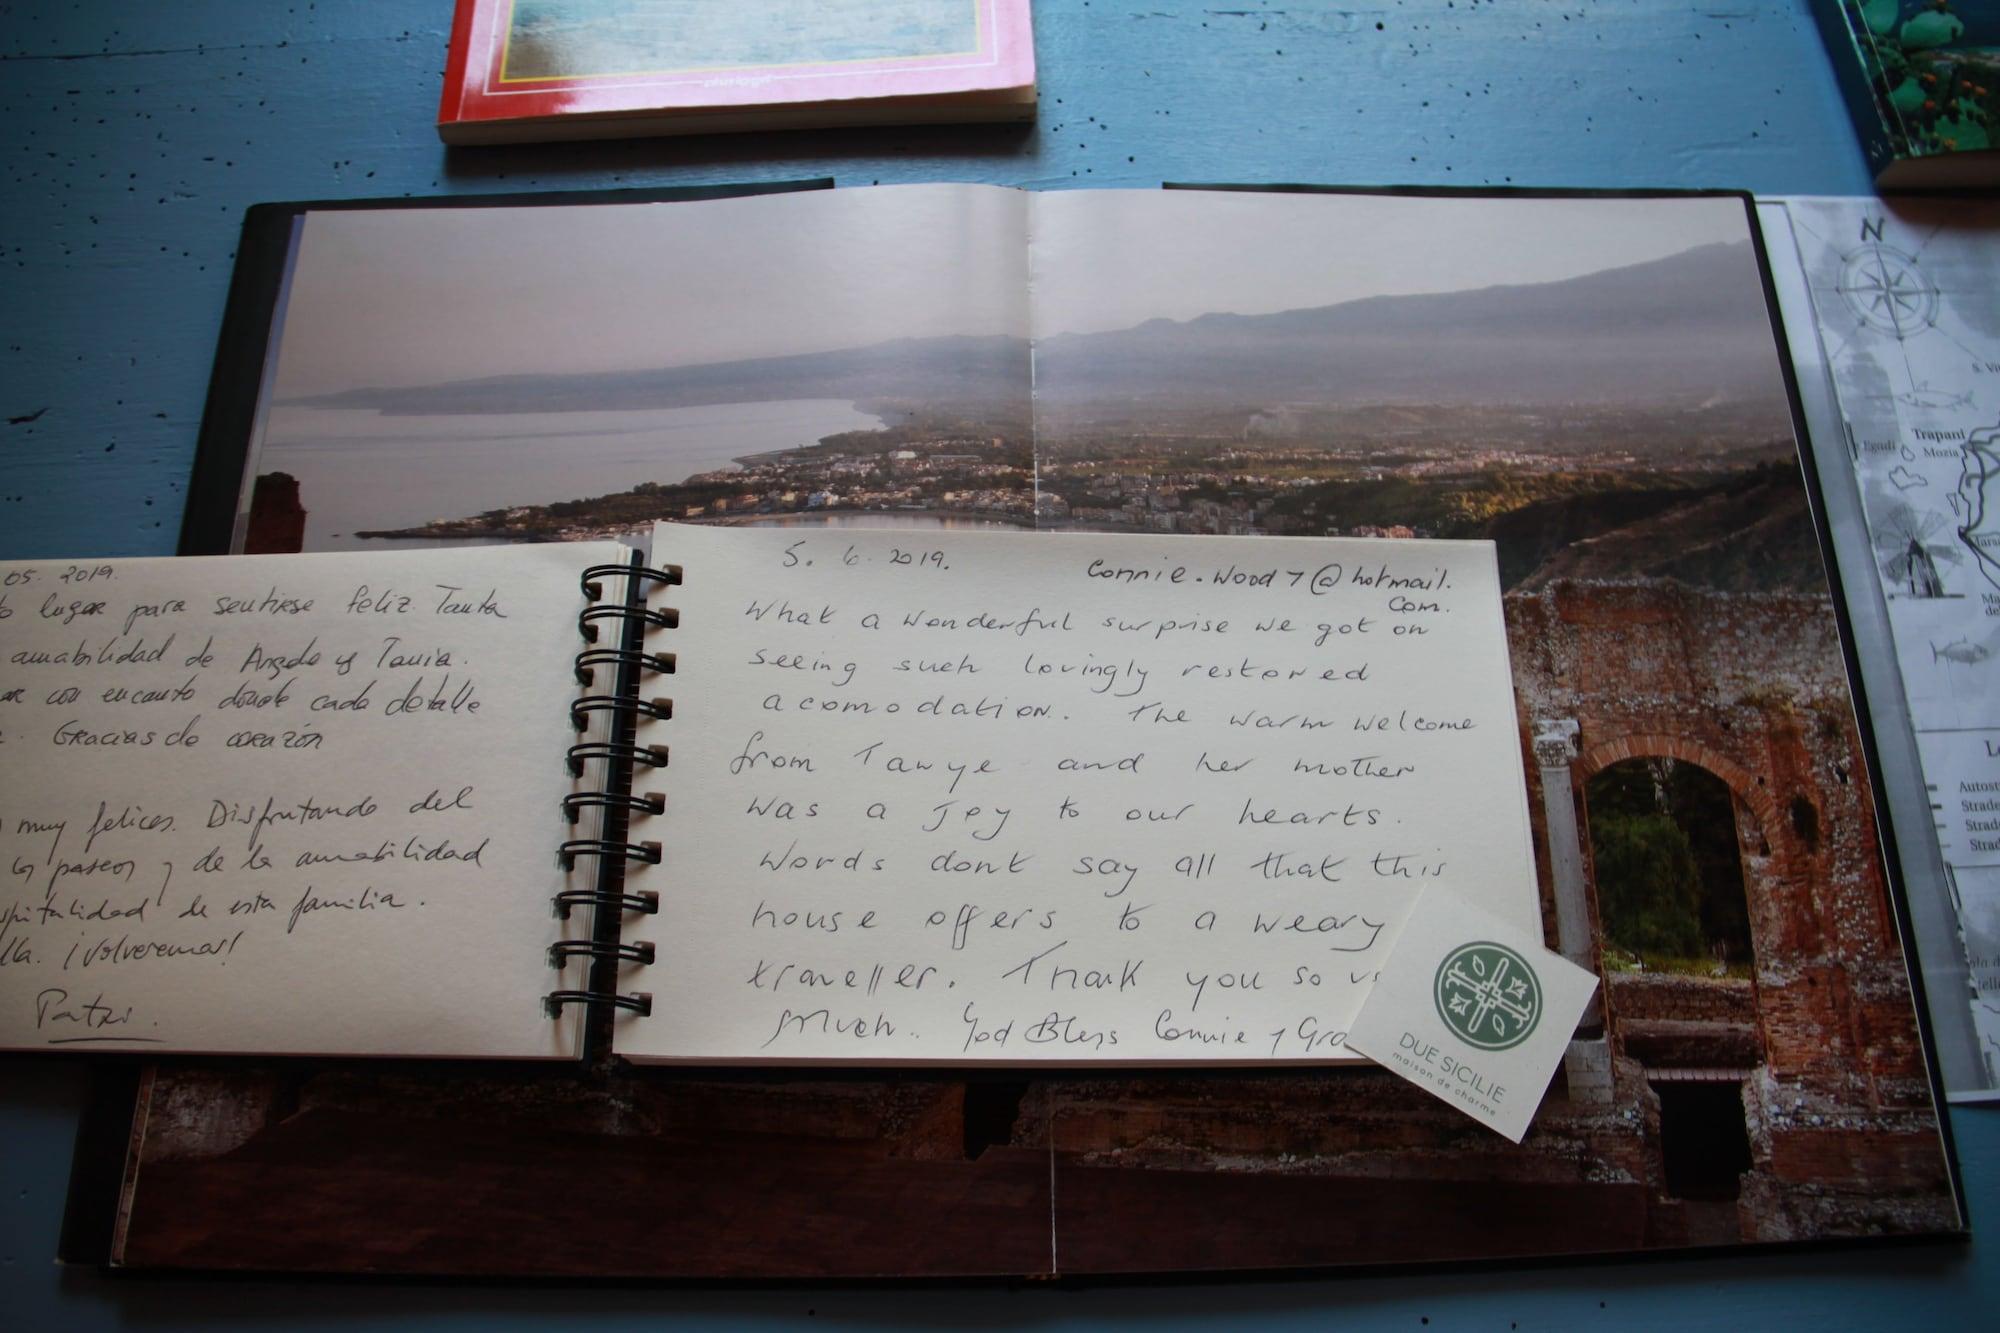 05. 2019.
lugar para sentirse feliz. Tanta
amabilidad de Angelo y Tania.
con encanto donde cada detalle
Gracias de corazón
muy felices. Disfrutando del
paseos y de la amabilidad
de esta familia.
¡Volveremos!
Patxi.
5. 6. 2019.
Connie.Wood7@hotmail.
Com.
What a wonderful surprise we got on
seeing such lovingly restored
acomodation. The warm welcome
from Tanye and her mother
was a joy to our hearts.
Words dont say all that this
house offers to a weary
traveller. Thank you so
much. God Bless Connie
DUE SICILIE
maison de charme
N
S. Vi
Egadi
Trapani
Mozia
Autost
Strade
Strad
Strad